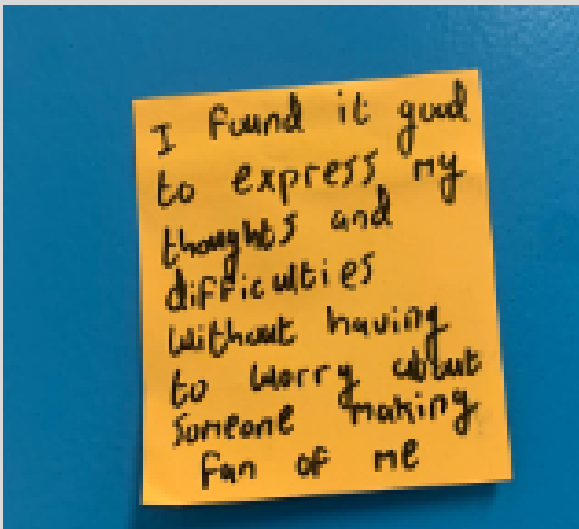 I found it good
to express my
thoughts and
difficulties
without having
to worry about
someone making
fun of me